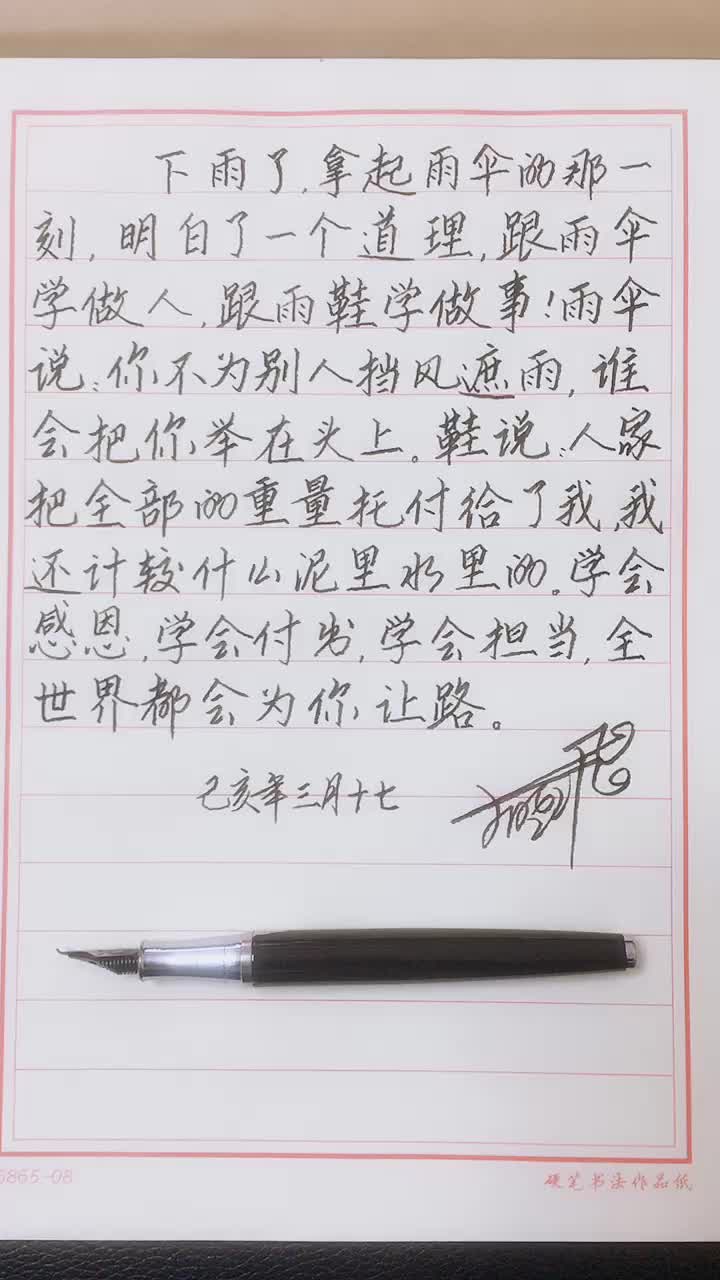 下雨了,拿起雨伞的那一
刻,明白了一个道理,跟雨伞
学做人,跟雨鞋学做事!雨伞
说:你不为别人挡风遮雨,谁
会把你举在头上。鞋说:人家
把全部的重量托付给了我,我
还计较什么泥里水里的。学会
感恩,学会付出,学会担当,全
世界都会为你让路。
己亥年三月十七
5865-08
硬笔书法作品纸